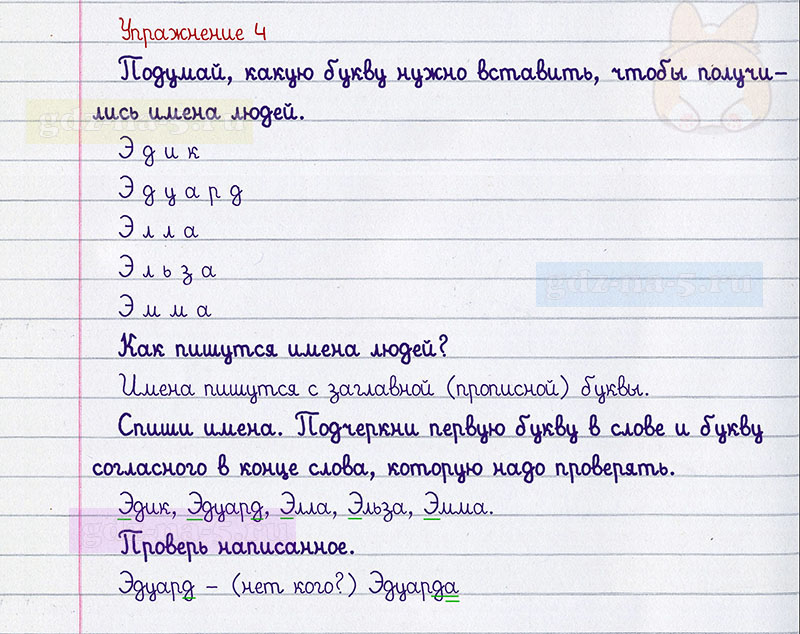 Упражнение 4
Подумай, какую букву нужно вставить, чтобы получи-
лись имена людей.
gdz-na-5.ru
Э д и к
Э д у а р д
Э л л а
Э л ь з а
gdz-na-5.ru
Э м м а
Как пишутся имена людей?
Имена пишутся с заглавной (прописной) буквы.
Спиши имена. Подчеркни первую букву в слове и букву
согласного в конце слова, которую надо проверять.
Эдик, Эдуард, Элла, Эльза, Эмма.
gdz-na-5.ru
Проверь написанное.
Эдуард – (нет кого?) Эдуарда